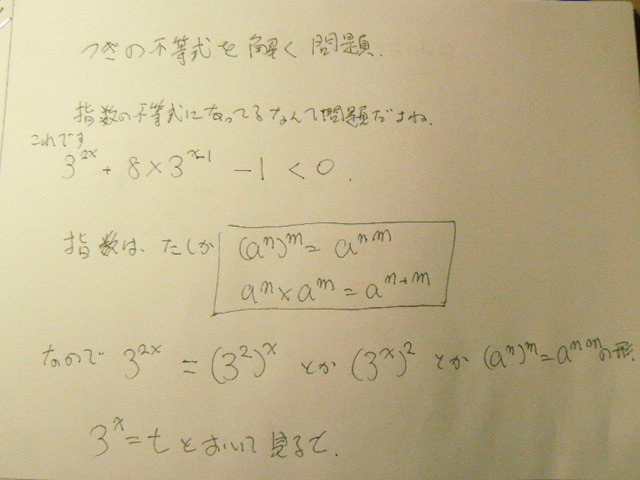 つぎの不等式を解く問題.
指数の不等式になってるなんて問題だよね.
これです
3^{2x} + 8 × 3^{x-1} - 1 < 0.
指数は、たしか (a^n)^m = a^{nm}
a^n × a^m = a^{n+m}
なので 3^{2x} = (3^2)^x とか (3^x)^2 とか (a^n)^m = a^{nm}の形.
3^x = t とおいて見ると.